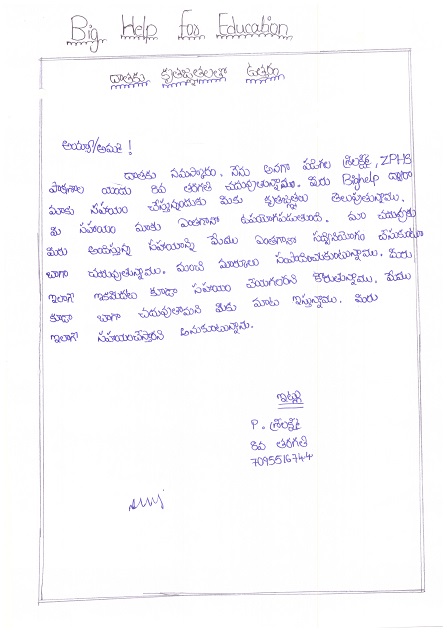 Big Help For Education
దాతకు కృతజ్ఞతలతో ఉత్తరం
అయ్యా/అమ్మా !
దాతకు నమస్కారం. నేను అనగా పడిగల శ్రీలక్ష్మి, ZPHS
పాఠశాల యందు 8వ తరగతి చదువుతున్నాము. మీరు Bighelp ద్వారా
మాకు సహాయం చేస్తున్నందుకు మీకు కృతజ్ఞతలు తెలుపుతున్నాము.
మీ సహాయం మాకు ఎంతగానో ఉపయోగపడుతుంది. మా చదువుకు
మీరు అందిస్తున్న సహాయాన్ని మేము ఎంతగానో సద్వినియోగం చేసుకుంటూ
బాగా చదువుతున్నాము. మంచి మార్కులు సంపాదించుకుంటున్నాము. మీరు
ఇలాగే ఇకమీదట కూడా సహాయం చేయగలరని కోరుతున్నాము. మేము
కూడా బాగా చదువుతామని మీకు మాట ఇస్తున్నాము. మీరు
ఇలాగే సహాయంచేస్తారని అనుకుంటున్నాము.
ఇట్లు
P. శ్రీలక్ష్మి
8వ తరగతి
7095516744